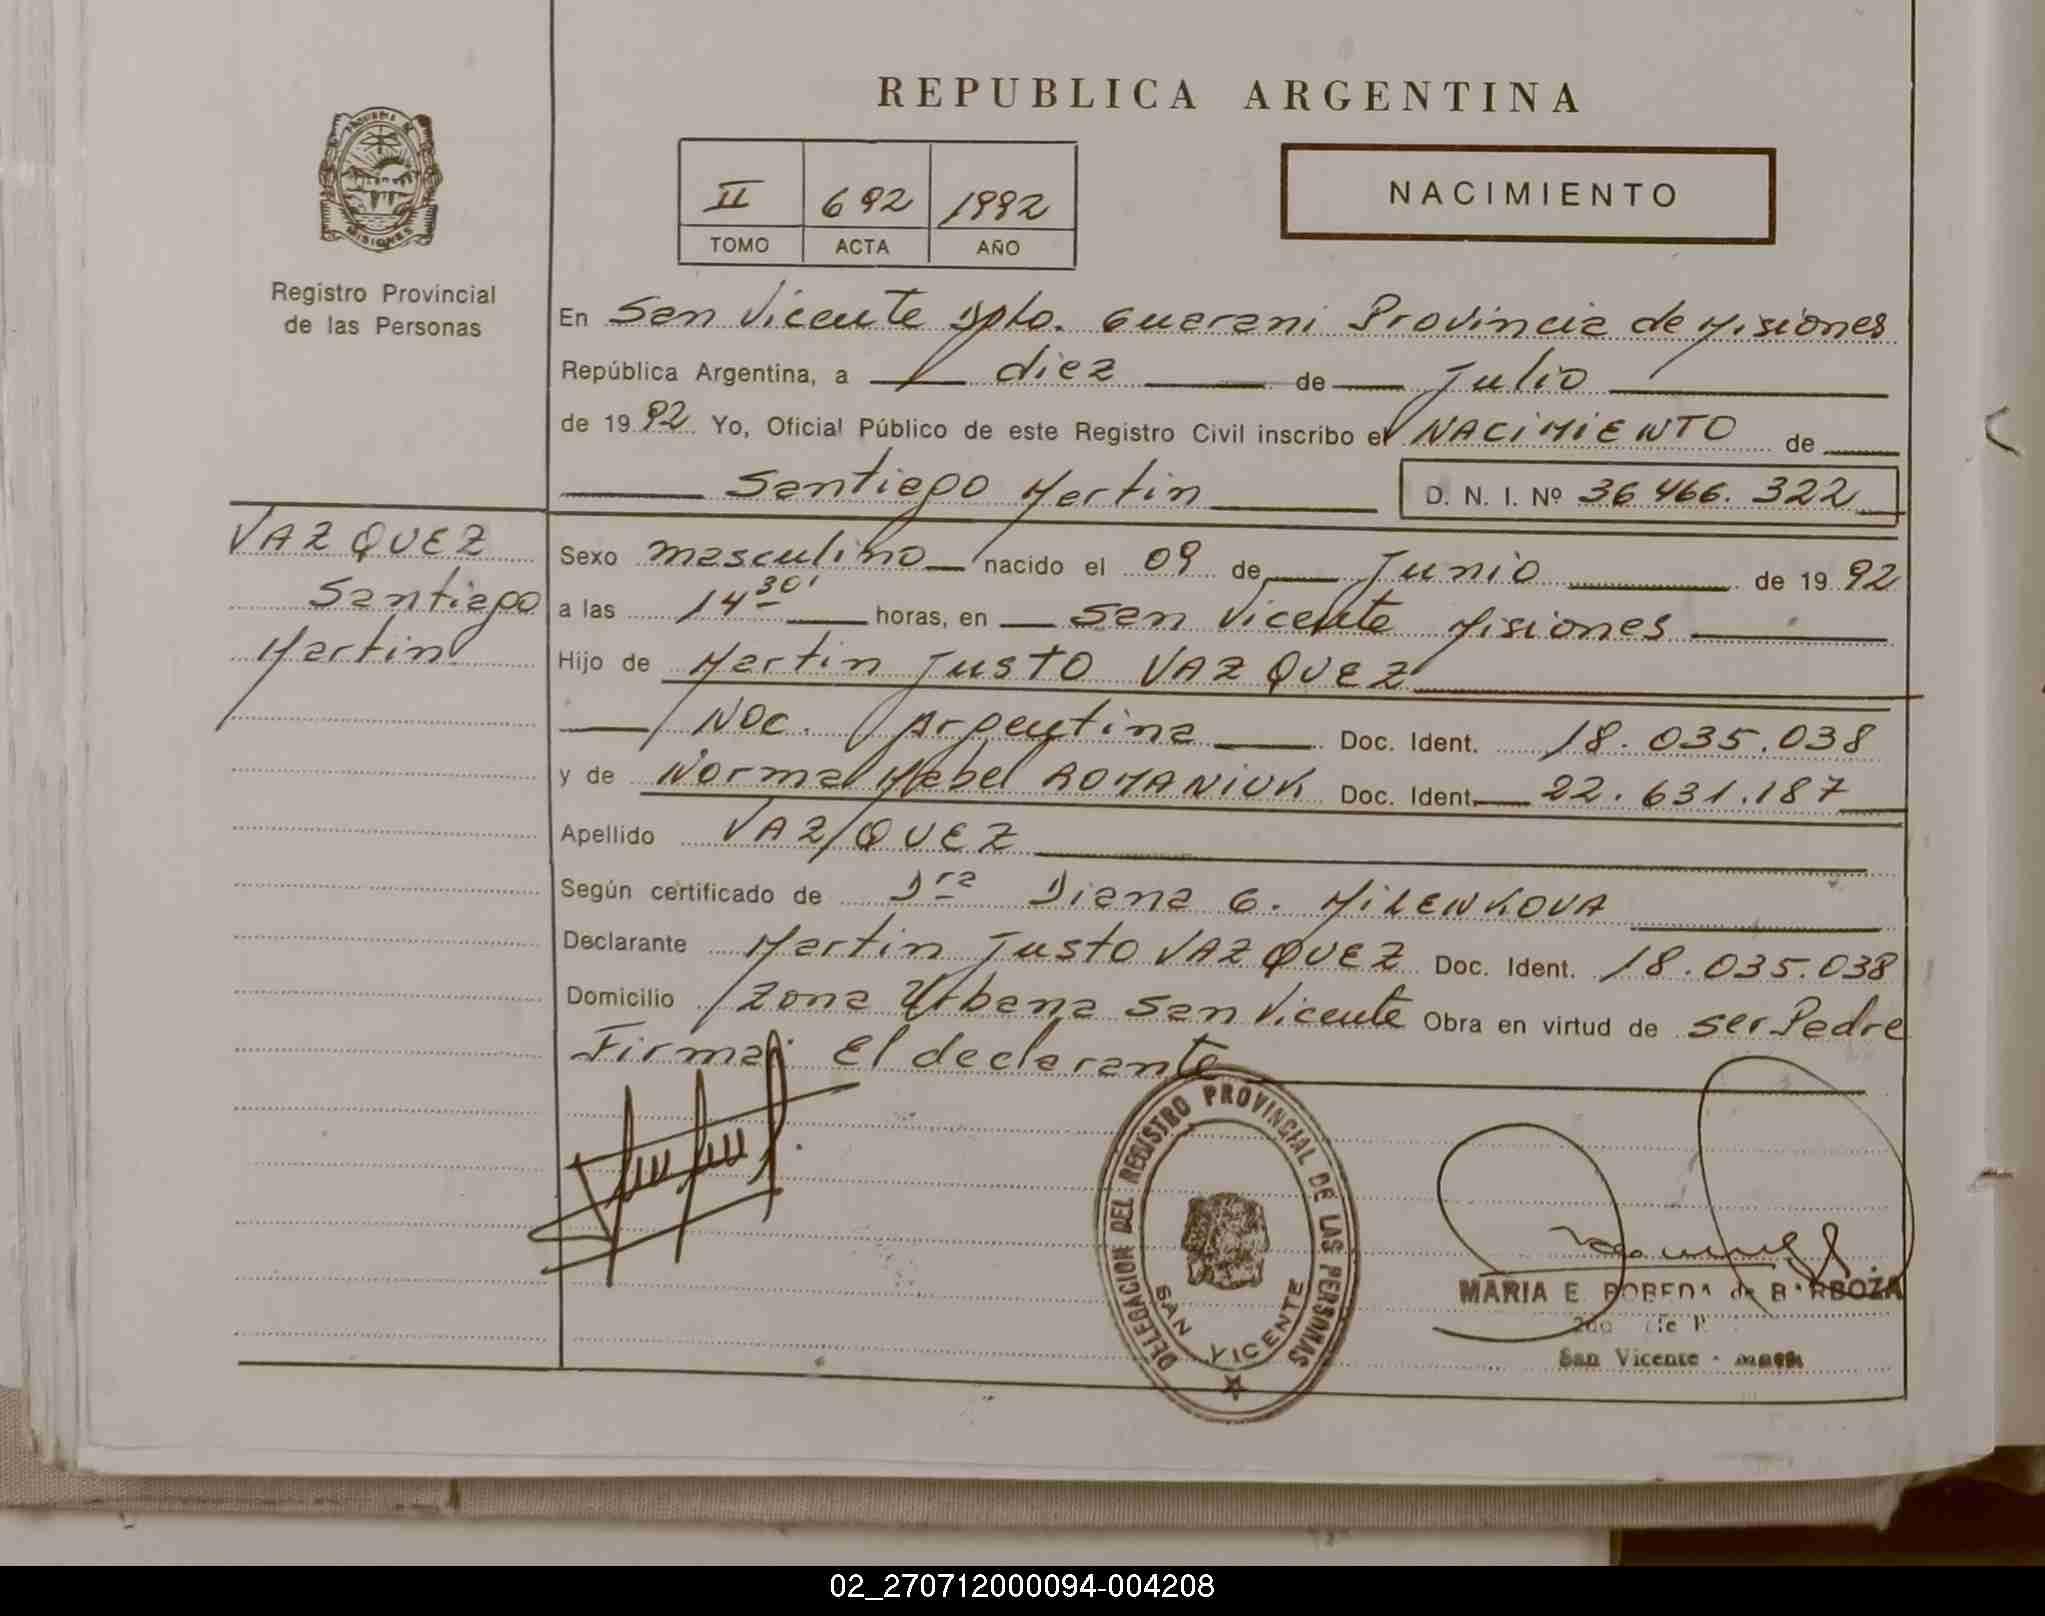 REPUBLICA ARGENTINA
II 692 1992
TOMO ACTA AÑO
NACIMIENTO
Registro Provincial
de las Personas
En San Vicente Dpto. Guarani Provincia de Misiones
República Argentina, a diez de Julio
de 1992 Yo, Oficial Público de este Registro Civil inscribo el NACIMIENTO de
Santiago Martin D. N. I. Nº 36 466. 322
VAZQUEZ
Santiago
Martin
Sexo masculino nacido el 09 de Junio de 1992
a las 14 30' horas, en San Vicente Misiones
Hijo de Martin Justo VAZQUEZ
Nac. Argentina Doc. Ident. 18.035.038
y de Norma Mabel ROMANIUK Doc. Ident. 22.631.187
Apellido VAZQUEZ
Según certificado de Dra Diana G. MILENKOVA
Declarante Martin Justo VAZQUEZ Doc. Ident. 18.035.038
Domicilio Zona Urbana San Vicente Obra en virtud de ser Padre
Firma: El declarante
DELEGACION DEL REGISTRO PROVINCIAL DE LAS PERSONAS
SAN VICENTE
MARIA E. de BARBOZA
San Vicente -
02_270712000094-004208